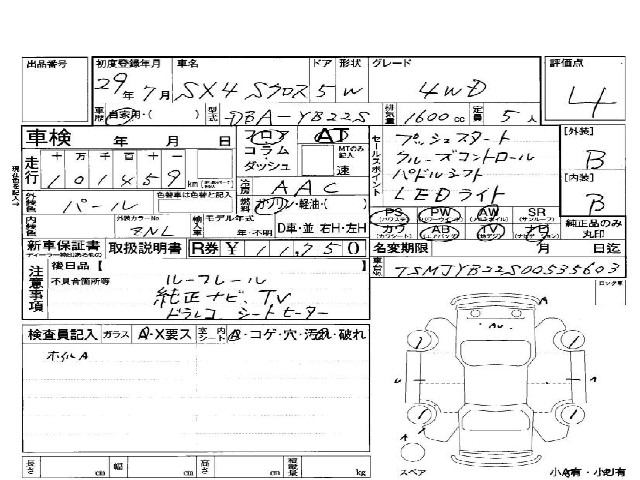 出品番号 初度登録年月 車名 ドア 形状 グレード 評価点
29年 7月 SX4 Sクロス 5 W 4WD 4
車歴 自家用・( ) 型式 DBA-YB22S 排気量 1600cc 定員 5人
車検 年 月 日 フロア AT
コラム MTのみ記入
ダッシュ 速
走行 十 万 千 百 十 一
101459 km
冷房 AAC
外装色 パール 色替車は色替と記入 燃料 ガソリン・軽油・( )
内装色 外装カラーNo ZNL 輸入車 モデル年式 年・不明 D車・並 右H・左H
セールスポイント
プッシュスタート
クルーズコントロール
パドルシフト
LEDライト
[外装] B
[内装] B
PS (パワステ) PW (パワーウィンド) AW (アルミホイル) SR (サンルーフ)
カワ (カワシート) AB (エアバッグ) TV ナビ 純正品のみ丸印
新車保証書 取扱説明書 R券 ¥11,750 名変期限 月 日迄
ディーラー捺印あるもの
車台No. TSMJYB22S00535603
注意事項 後日品【 】
不具合箇所等 ルーフレール
純正ナビ、TV
ドラレコ シートヒーター
ロック車
検査員記入 ガラス A・X要ス 室内シート コゲ・穴・汚れ・破れ
ホイルA
AU
U A
A
スペア 小キ有・小凹有
長さ cm 幅 cm 高さ cm 積載量 kg